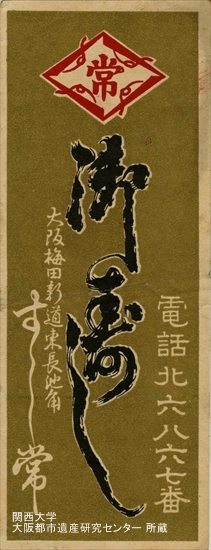 常
御壽し
電話北六八六七番
大阪梅田新道東長池角
すし常
関西大学
大阪都市遺産研究センター 所蔵